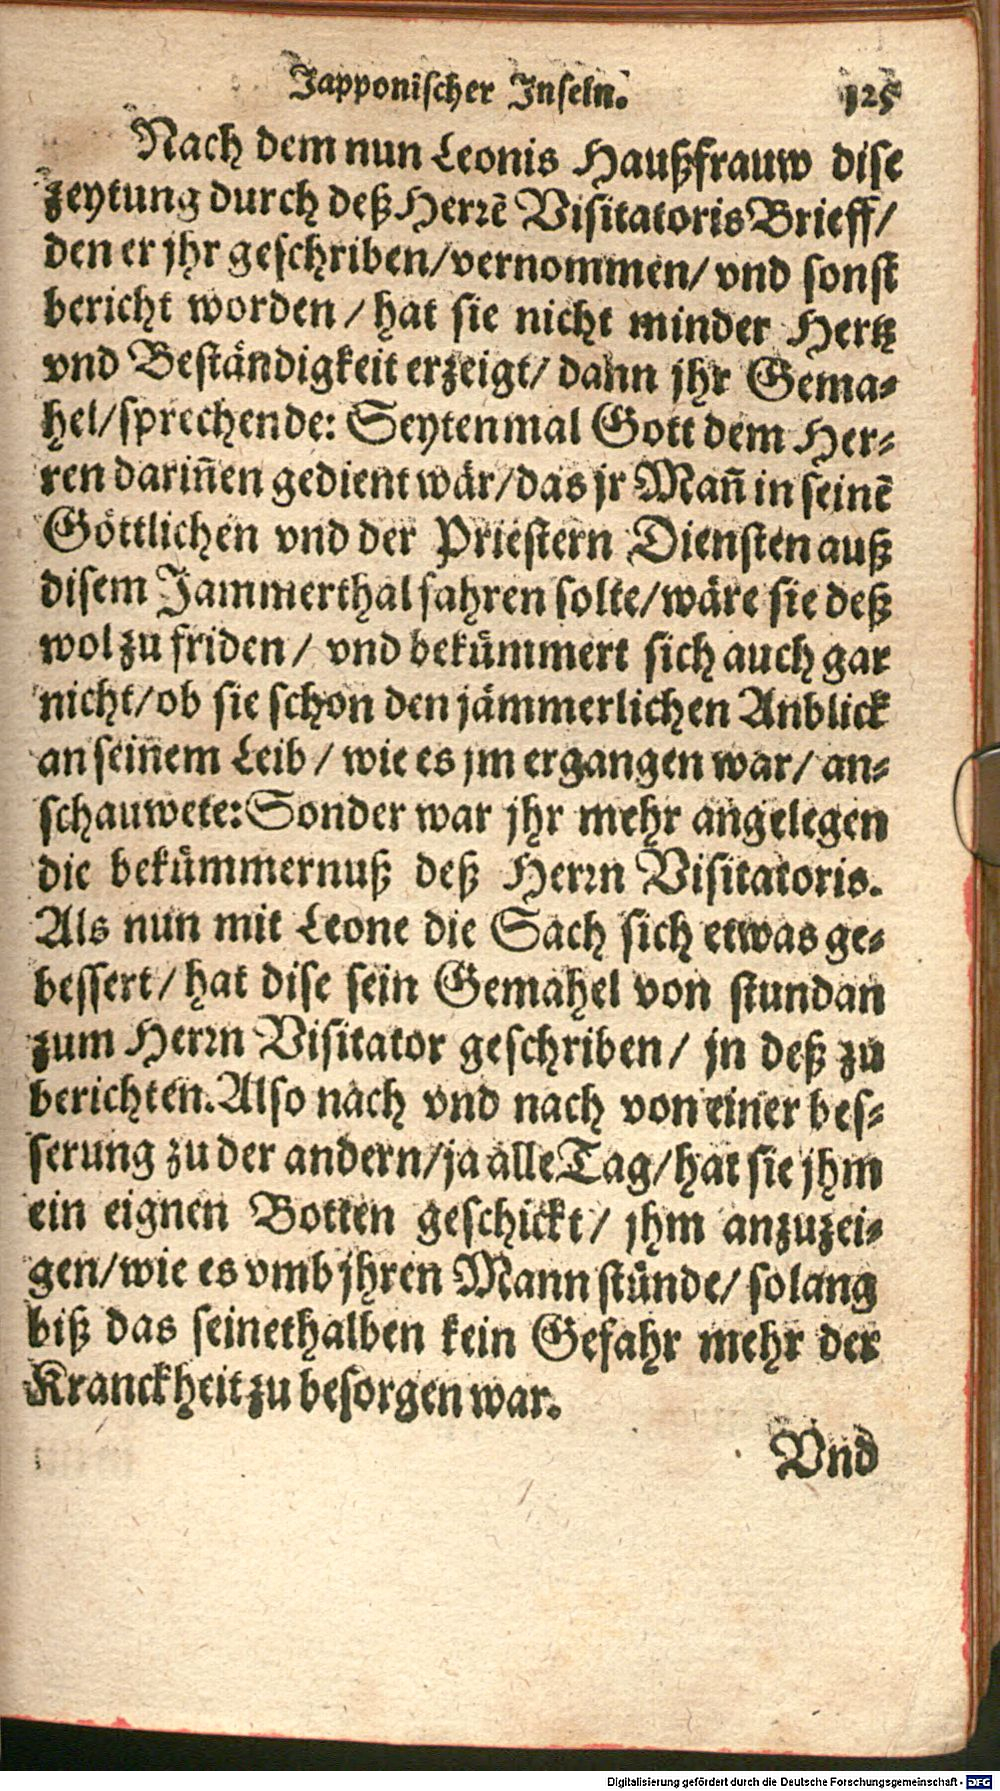 Japponischer Inseln. 125
Nach dem nun Leonis Haußfrauw dise
zeytung durch deß Herrẽ Visitatoris Brieff/
den er jhr geschriben/vernommen/ vnd sonst
bericht worden / hat sie nicht minder Hertz
vnd Beständigkeit erzeigt/ dann jhr Gema-
hel/sprechende: Seytenmal Gott dem Her-
ren dariñen gedient wär/das jr Mañ in seinẽ
Göttlichen vnd der Priestern Diensten auß
disem Jammerthal fahren solte/wäre sie deß
wol zu friden / vnd bekümmert sich auch gar
nicht/ob sie schon den jämmerlichen Anblick
an seinem Leib / wie es jm ergangen war/ an-
schauwete: Sonder war jhr mehr angelegen
die bekümmernuß deß Herrn Visitatoris.
Als nun mit Leone die Sach sich etwas ge-
bessert / hat dise sein Gemahel von stundan
zum Herrn Visitator geschriben / jn deß zu
berichten. Also nach vnd nach von einer bes-
serung zu der andern/ja alle Tag/hat sie jhm
ein eignen Botten geschickt / jhm anzuzei-
gen/wie es vmb jhren Mann stünde/ so lang
biß das seinethalben kein Gefahr mehr der
Kranckheit zu besorgen war.
Vnd
Digitalisierung gefördert durch die Deutsche Forschungsgemeinschaft - DFG